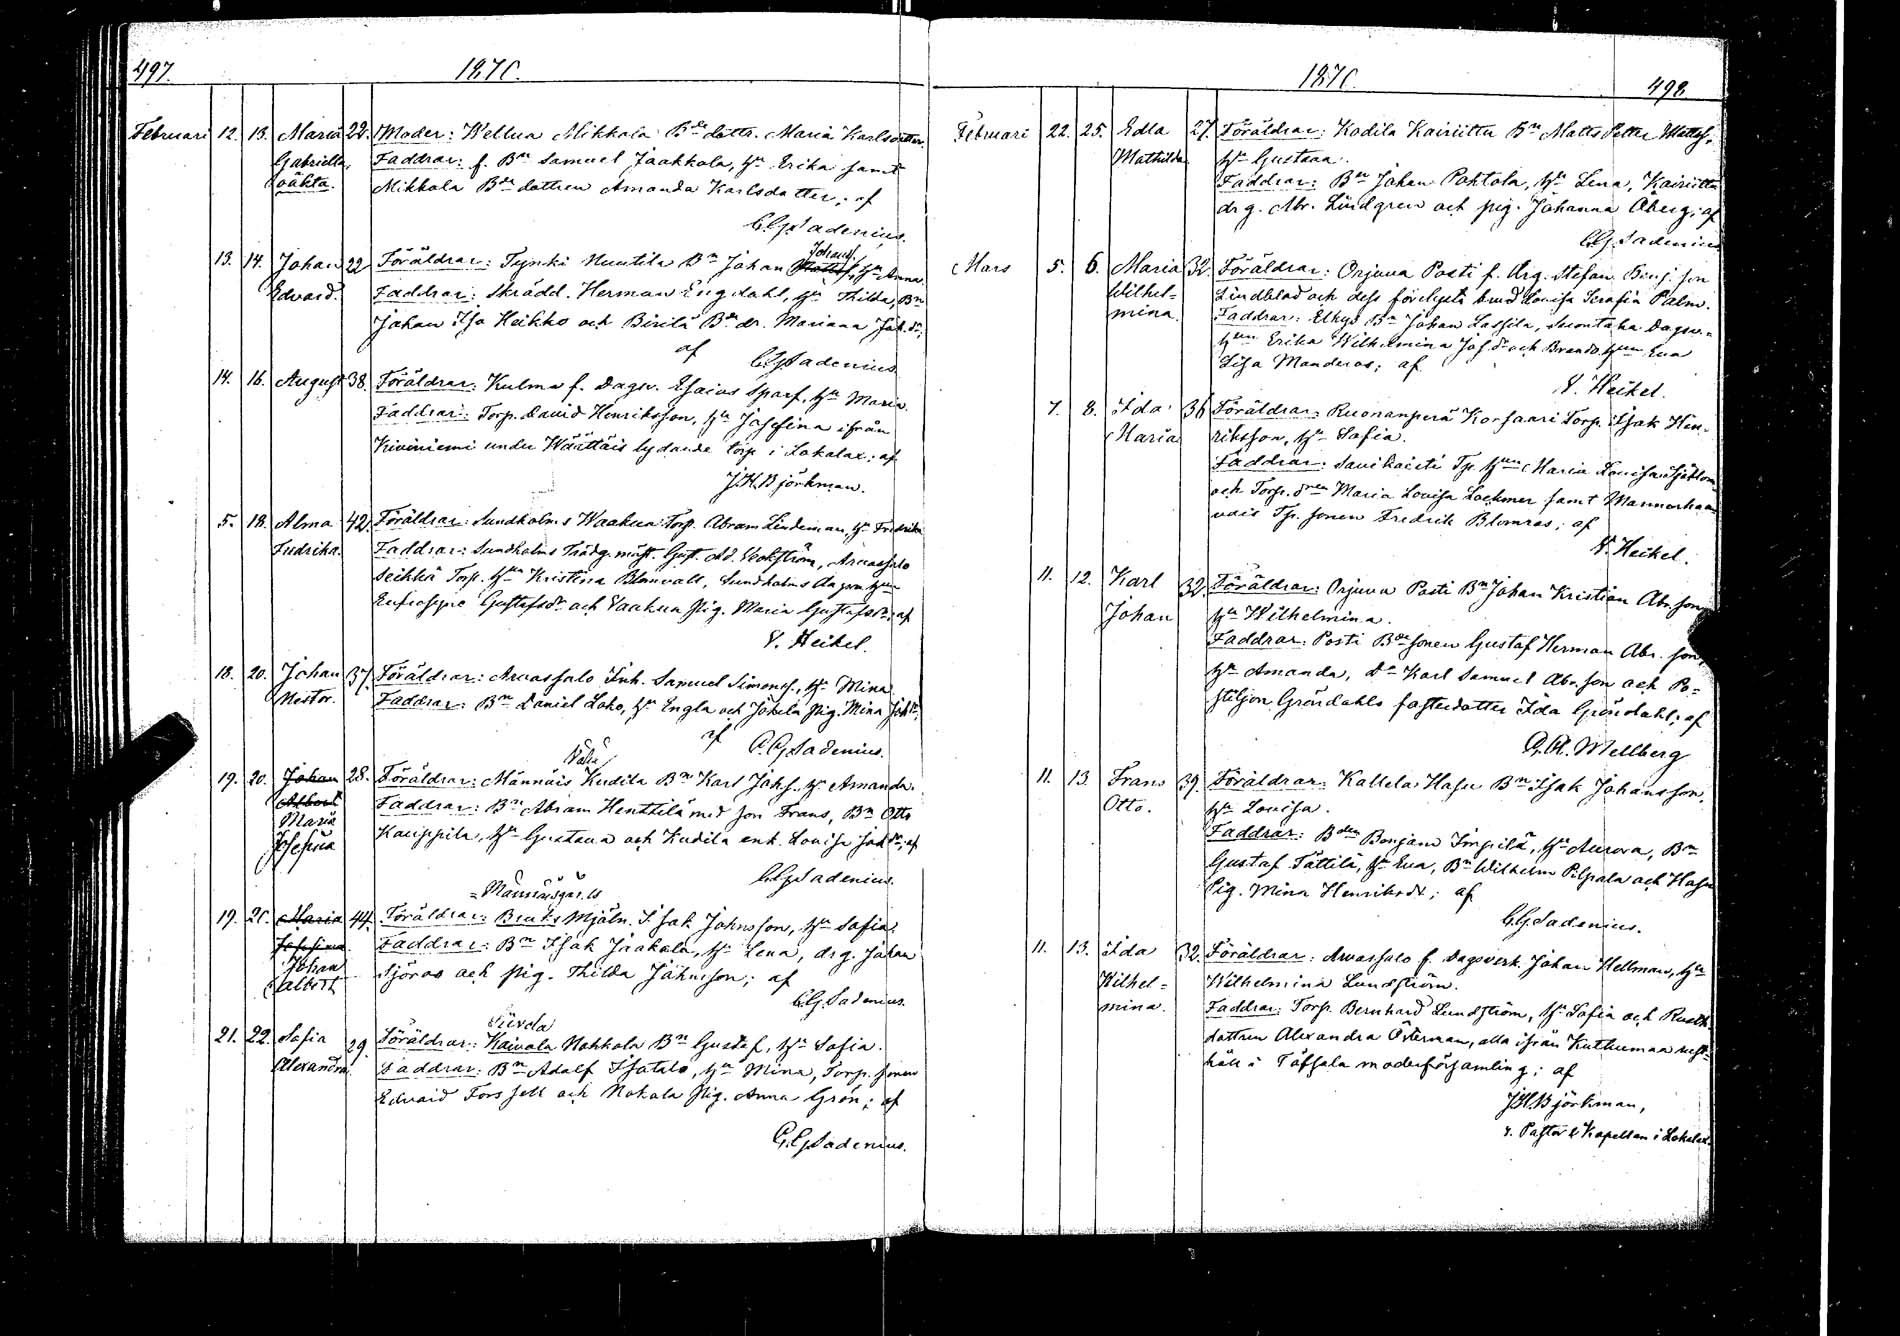 497. 1870.
Februari 12. 13. Maria 22. Moder: Wellua Mikkola Bde dottr. Maria Karlsdotter
Gabriella, Faddrar: f. Bn Samuel Jaakkola, hu Erika samt
oäkta. Mikkola Bde dottren Amanda Karlsdotter; af
C.G. Sadenius.
13. 14. Johan 22 Föräldrar: Tynki Nuutila Bn Johan Johansf, hu Anna.
Edvard. Faddrar: Skrädd. Herman Engdahl, hu Thilda, Bn
Johan Iso Heikko och Birilä Bn dr. Mariana Joh.dr;
af C.G. Sadenius
14. 16. August 38. Föräldrar: Kulma f. Dagsv. Esaias Sparf, hu Maria.
Faddrar: Torp. David Henriksson, hu Josefina ifrån
Kiviniemi under Wärttäis lydande torp i Lokalax; af
J.H. Björkman.
5. 18. Alma 42. Föräldrar: Sundholms Waakua Torp. Abram Lindeman, hu Fredrika
Fredrika. Faddrar: Sundholms Trädg. mäst. Gust. Ad. Arvassalo
Seikkä Torp. hun Kristina Blomvall, Sundholms hun
Eufrosyne Gustafsdr och Vaakua pig. Maria Gustafsdr; af
V. Heikel.
18. 20. Johan 37. Föräldrar: Arvassalo Inh. Samuel Simonsf., hu Mina
Nestor. Faddrar: Bn Daniel Loho, hu Engla och Jokela pig. Mina Johdr;
af C.G. Sadenius.
19. 20. Johan 28. Föräldrar: Männäis Kudila Bn Karl Johsf. hu Amanda.
Albert Faddrar: Bn Abram Henttilä med son Frans, Bn Otto
Maria Kauppila, hu Gustava och Kudila enk. Lovisa Johdr; af
Josefina
C.G. Sadenius.
19. 20. Maria 44. Föräldrar: Bruks Mjöln. Isak Johnsson, hu Sofia.
Josefina Faddrar: Bn Isak Jaakola, hu Lena, drg. Johan
Johan Sjöros och pig. Thilda Johnsson; af
Albert C.G. Sadenius.
Siivda
21. 22. Sofia 29. Föräldrar: Kaivola Nokkola Bn Gustaf, hu Sofia.
Alexandra. Faddrar: Bn Adolf Isotalo, hu Mina, Torp. sonen
Edvard Forssell och Nokala pig. Anna Grön; af
C.G. Sadenius.
1870. 498
Februari 22. 25. Edla 27. Föräldrar: Kodila Kairiittu Bn Matts Petter Mattsf.
Mathilda hu Gustava.
Faddrar: Bn Johan Pohtola, hu Lena, Kairiittu
drg. Abr. Lindgren och pig. Johanna Åberg; af
C.G. Sadenius
Mars 5. 6. Maria 32. Föräldrar: Orjuva Posti f. drg. Stefan Benj. son
Wilhel= Lindblad och dess förelysta brud Lovisa Serafia Palm.
mina. Faddrar: Elkyö Bn Johan Lassila, Suontaka Dagsv.=
hun Erika Wilhelmina Josdr och hun Eva
Lisa Manderos; af
V. Heikel.
7. 8. Ida 36 Föräldrar: Ruonanperä Korsaari Torp. Isak Hen=
Maria riksson, hu Sofia.
Faddrar: Savikaisti Tp. hun Maria Lovisa Sjöblom
och Torp. dren Maria Lovisa Lockmer samt
Tp. sonen Fredrik Blomros; af
V. Heikel.
11. 12. Karl 32. Föräldrar: Orjuva Posti Bn Johan Kristian Abr. son
Johan hu Wilhelmina.
Faddrar: Posti Bde sonen Gustaf Herman Abr. son
hu Amanda, Do Karl Samuel Abr. son och Po=
stiljon Gröndahls fosterdotter Ida Gröndahl; af
G.A. Mellberg
11. 13. Frans 39. Föräldrar: Kallela Hasu Bn Isak Johansson,
Otto. hu Lovisa.
Faddrar: Bden Benjam Impilä, hu Aurora, Bn
Gustaf Tättilä, hu Eva, Bn Wilhelm Pilpala och Hasu
Pig. Mina Henriksdr; af
C.G. Sadenius.
11. 13. Ida 32. Föräldrar: Arvassalo f. Dagsverk. Johan Hellman, hu
Wilhel= Wilhelmina Lundström.
mina. Faddrar: Torp. Bernhard Lundström, hu Sofia och Rusth.
dottern Alexandra Österman, alla ifrån Kuthumaa rust=
håll i Töfsala moderförsamling; af
J.H. Björkman,
v. Pastor & Kapellan i Lokalax.